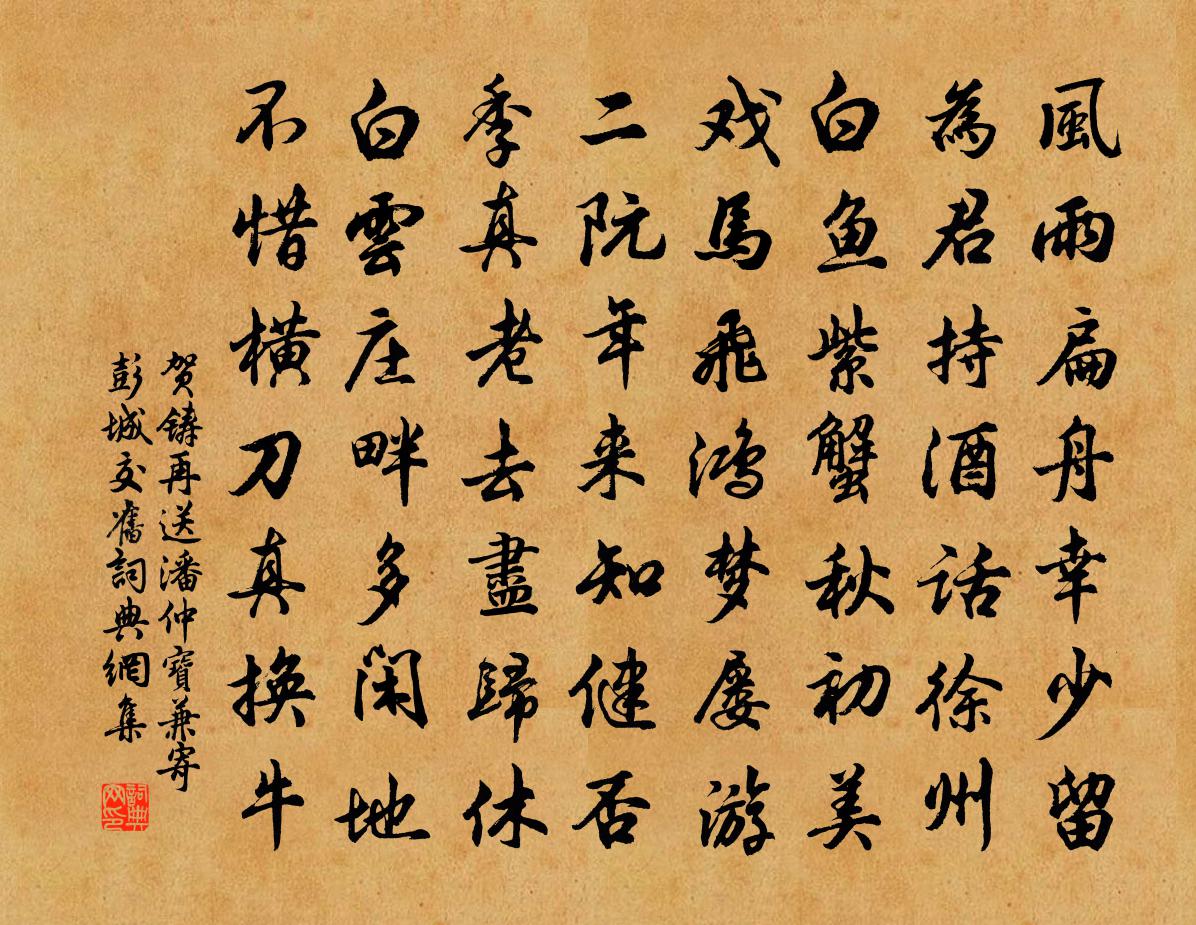 風雨扁舟幸少留
為君持酒話徐州
白鱼紫蟹秋初美
戏馬飛鸿梦屡游
二阮年来知健否
季真老去盡歸休
白雲庄畔多闲地
不惜横刀真换牛
贺铸再送潘仲寶兼寄
彭城交舊詞典網集
詞典
网印